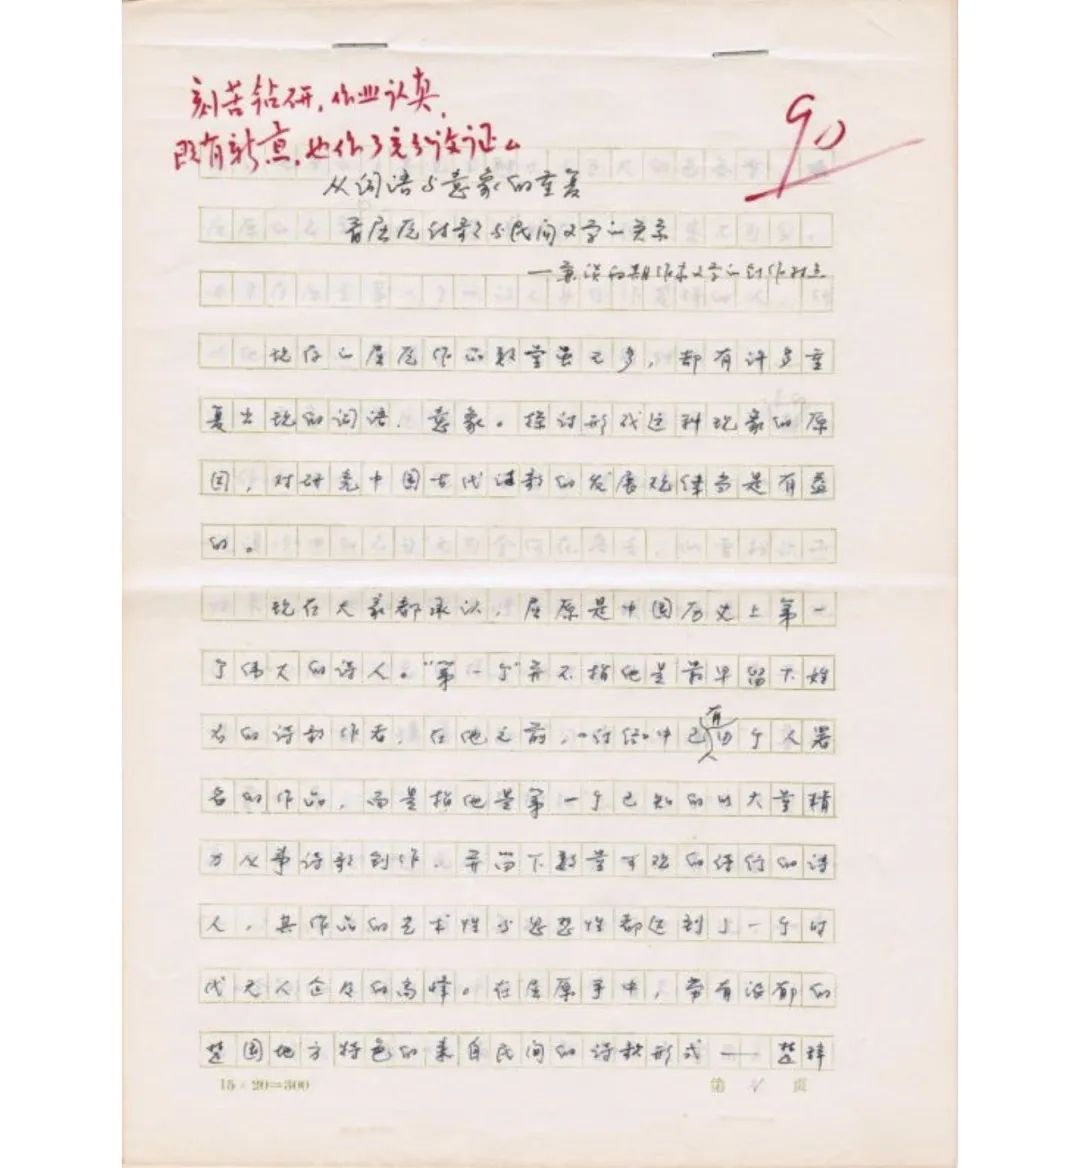 刻苦钻研，作业认真，
既有新意，也作了充分论证。
90
从词语与意象的重复
看屈原诗歌与民间文学的关系
——兼谈早期作家文学的创作特点
现存的屈原作品数量虽不多，却有许多重
复出现的词语、意象。探讨形成这种现象的原
因，对研究中国古代诗歌的发展规律当是有益
的。
现在大家都承认，屈原是中国历史上第一
个伟大的诗人。“第一个”并不指他是最早留下姓
名的诗歌作者，在他之前，《诗经》中已有四个人署
名的作品，而是指他是第一个已知的以大量精
力从事诗歌创作，并留下数量可观的诗行的诗
人，其作品的艺术性与思想性都达到了一个时
代无人企及的高峰。在屈原手中，带有浓郁的
楚国地方特色的来自民间的诗歌形式——楚辞
15×20=300
第 1 页